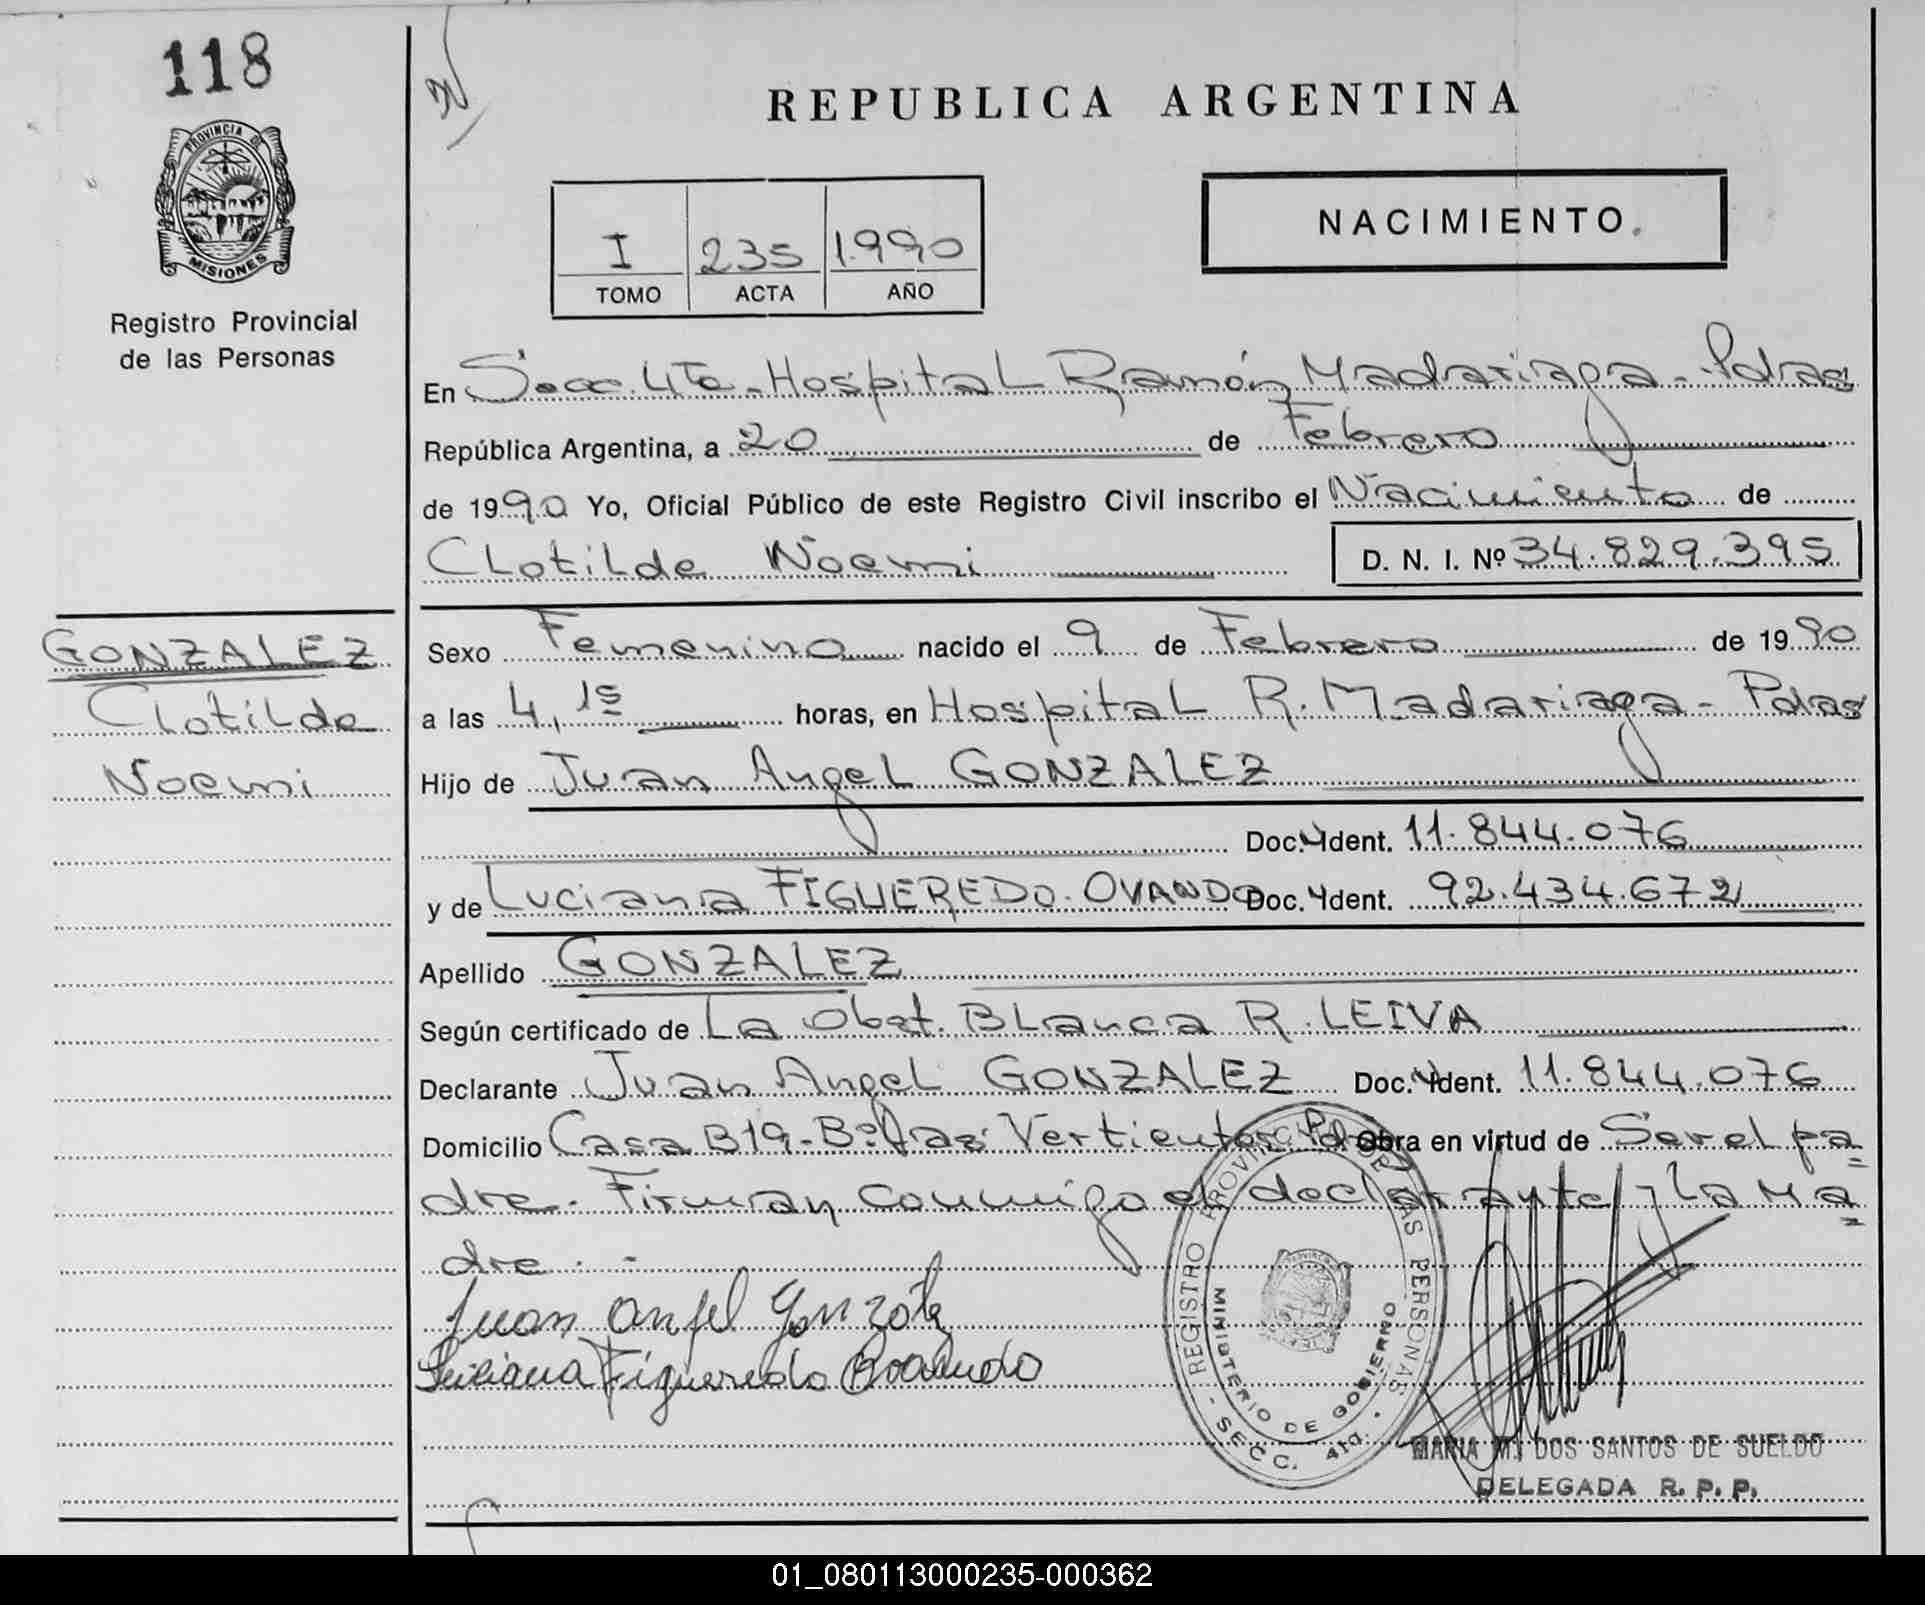 118
PROVINCIA DE
MISIONES
Registro Provincial
de las Personas
REPUBLICA ARGENTINA
NACIMIENTO.
I 235 1.990
TOMO ACTA AÑO
En Secc. 4ta. Hospital Ramón Madariaga - Pdas
República Argentina, a 20 de Febrero
de 1990 Yo, Oficial Público de este Registro Civil inscribo el Nacimiento de
Clotilde Noemi D. N. I. Nº 34.829.395
GONZALEZ
Clotilde
Noemi
Sexo Femenino nacido el 9 de Febrero de 1990
a las 4,15 horas, en Hospital R. Madariaga - Pdas
Hijo de Juan Angel GONZALEZ
Doc. Ident. 11.844.076
y de Luciana FIGUEREDO OVANDO Doc. Ident. 92.434.672
Apellido GONZALEZ
Según certificado de La Obst. Blanca R. LEIVA
Declarante Juan Angel GONZALEZ Doc. Ident. 11.844.076
Domicilio Casa B19 - Bº Las Vertientes Pdas Obra en virtud de Ser el pa=
dre. Firman conmigo el declarante y la ma=
dre. -
Juan Angel Gonzalez
Luciana Figueredo Ovando
REGISTRO PROVINCIAL DE LAS PERSONAS
MINISTERIO DE GOBIERNO
- SECC. 4ta. -
MARIA M. DOS SANTOS DE SUELDO
DELEGADA R. P. P.
01_080113000235-000362